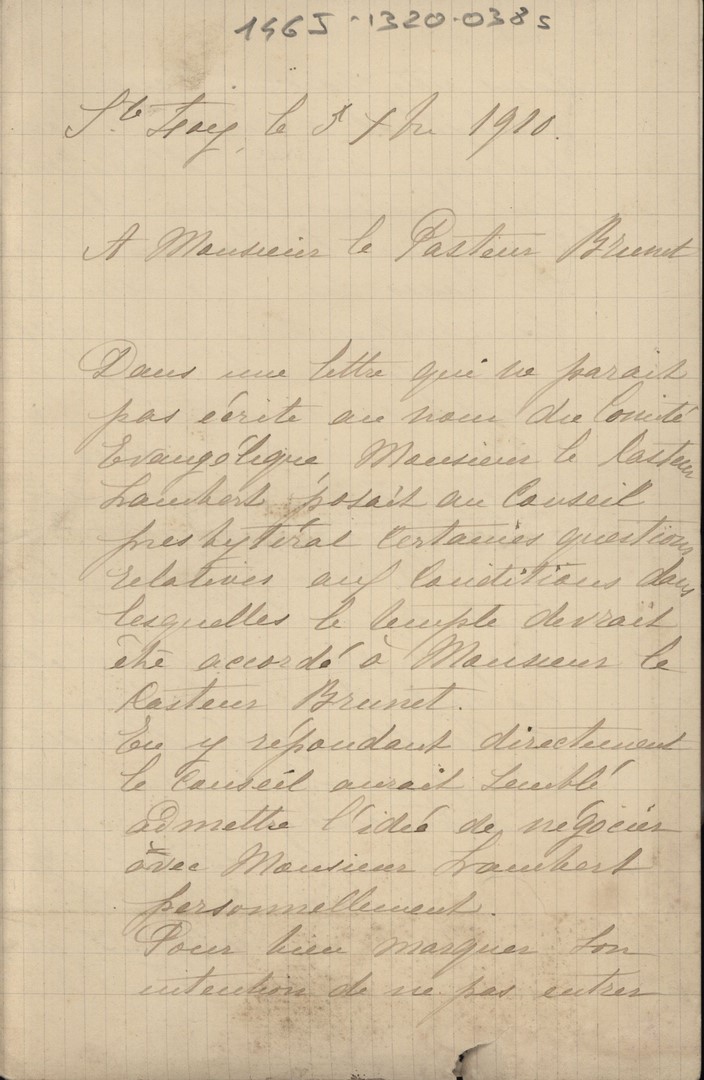 146J-1320-038s
Ste Foy, le 5 Xbre 1910.
A Monsieur le Pasteur Brunet
Dans une lettre qui ne parait
pas écrite au nom du Comité
Evangélique, Monsieur le Pasteur
Lambert posait au Conseil
presbytéral certaines questions
relatives aux conditions dans
lesquelles le temple devrait
être accordé à Monsieur le
Pasteur Brunet.
En y répondant directement
le Conseil aurait semblé
admettre l'idée de négocier
avec Monsieur Lambert
personnellement.
Pour bien marquer son
intention de ne pas entrer